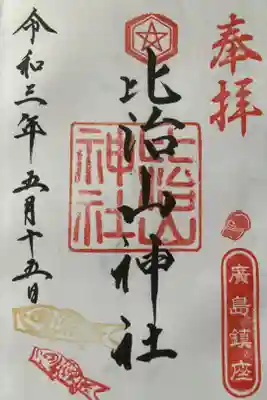 奉拝
比治山神社
比治山
神社
廣島鎮座
令和三年五月十五日